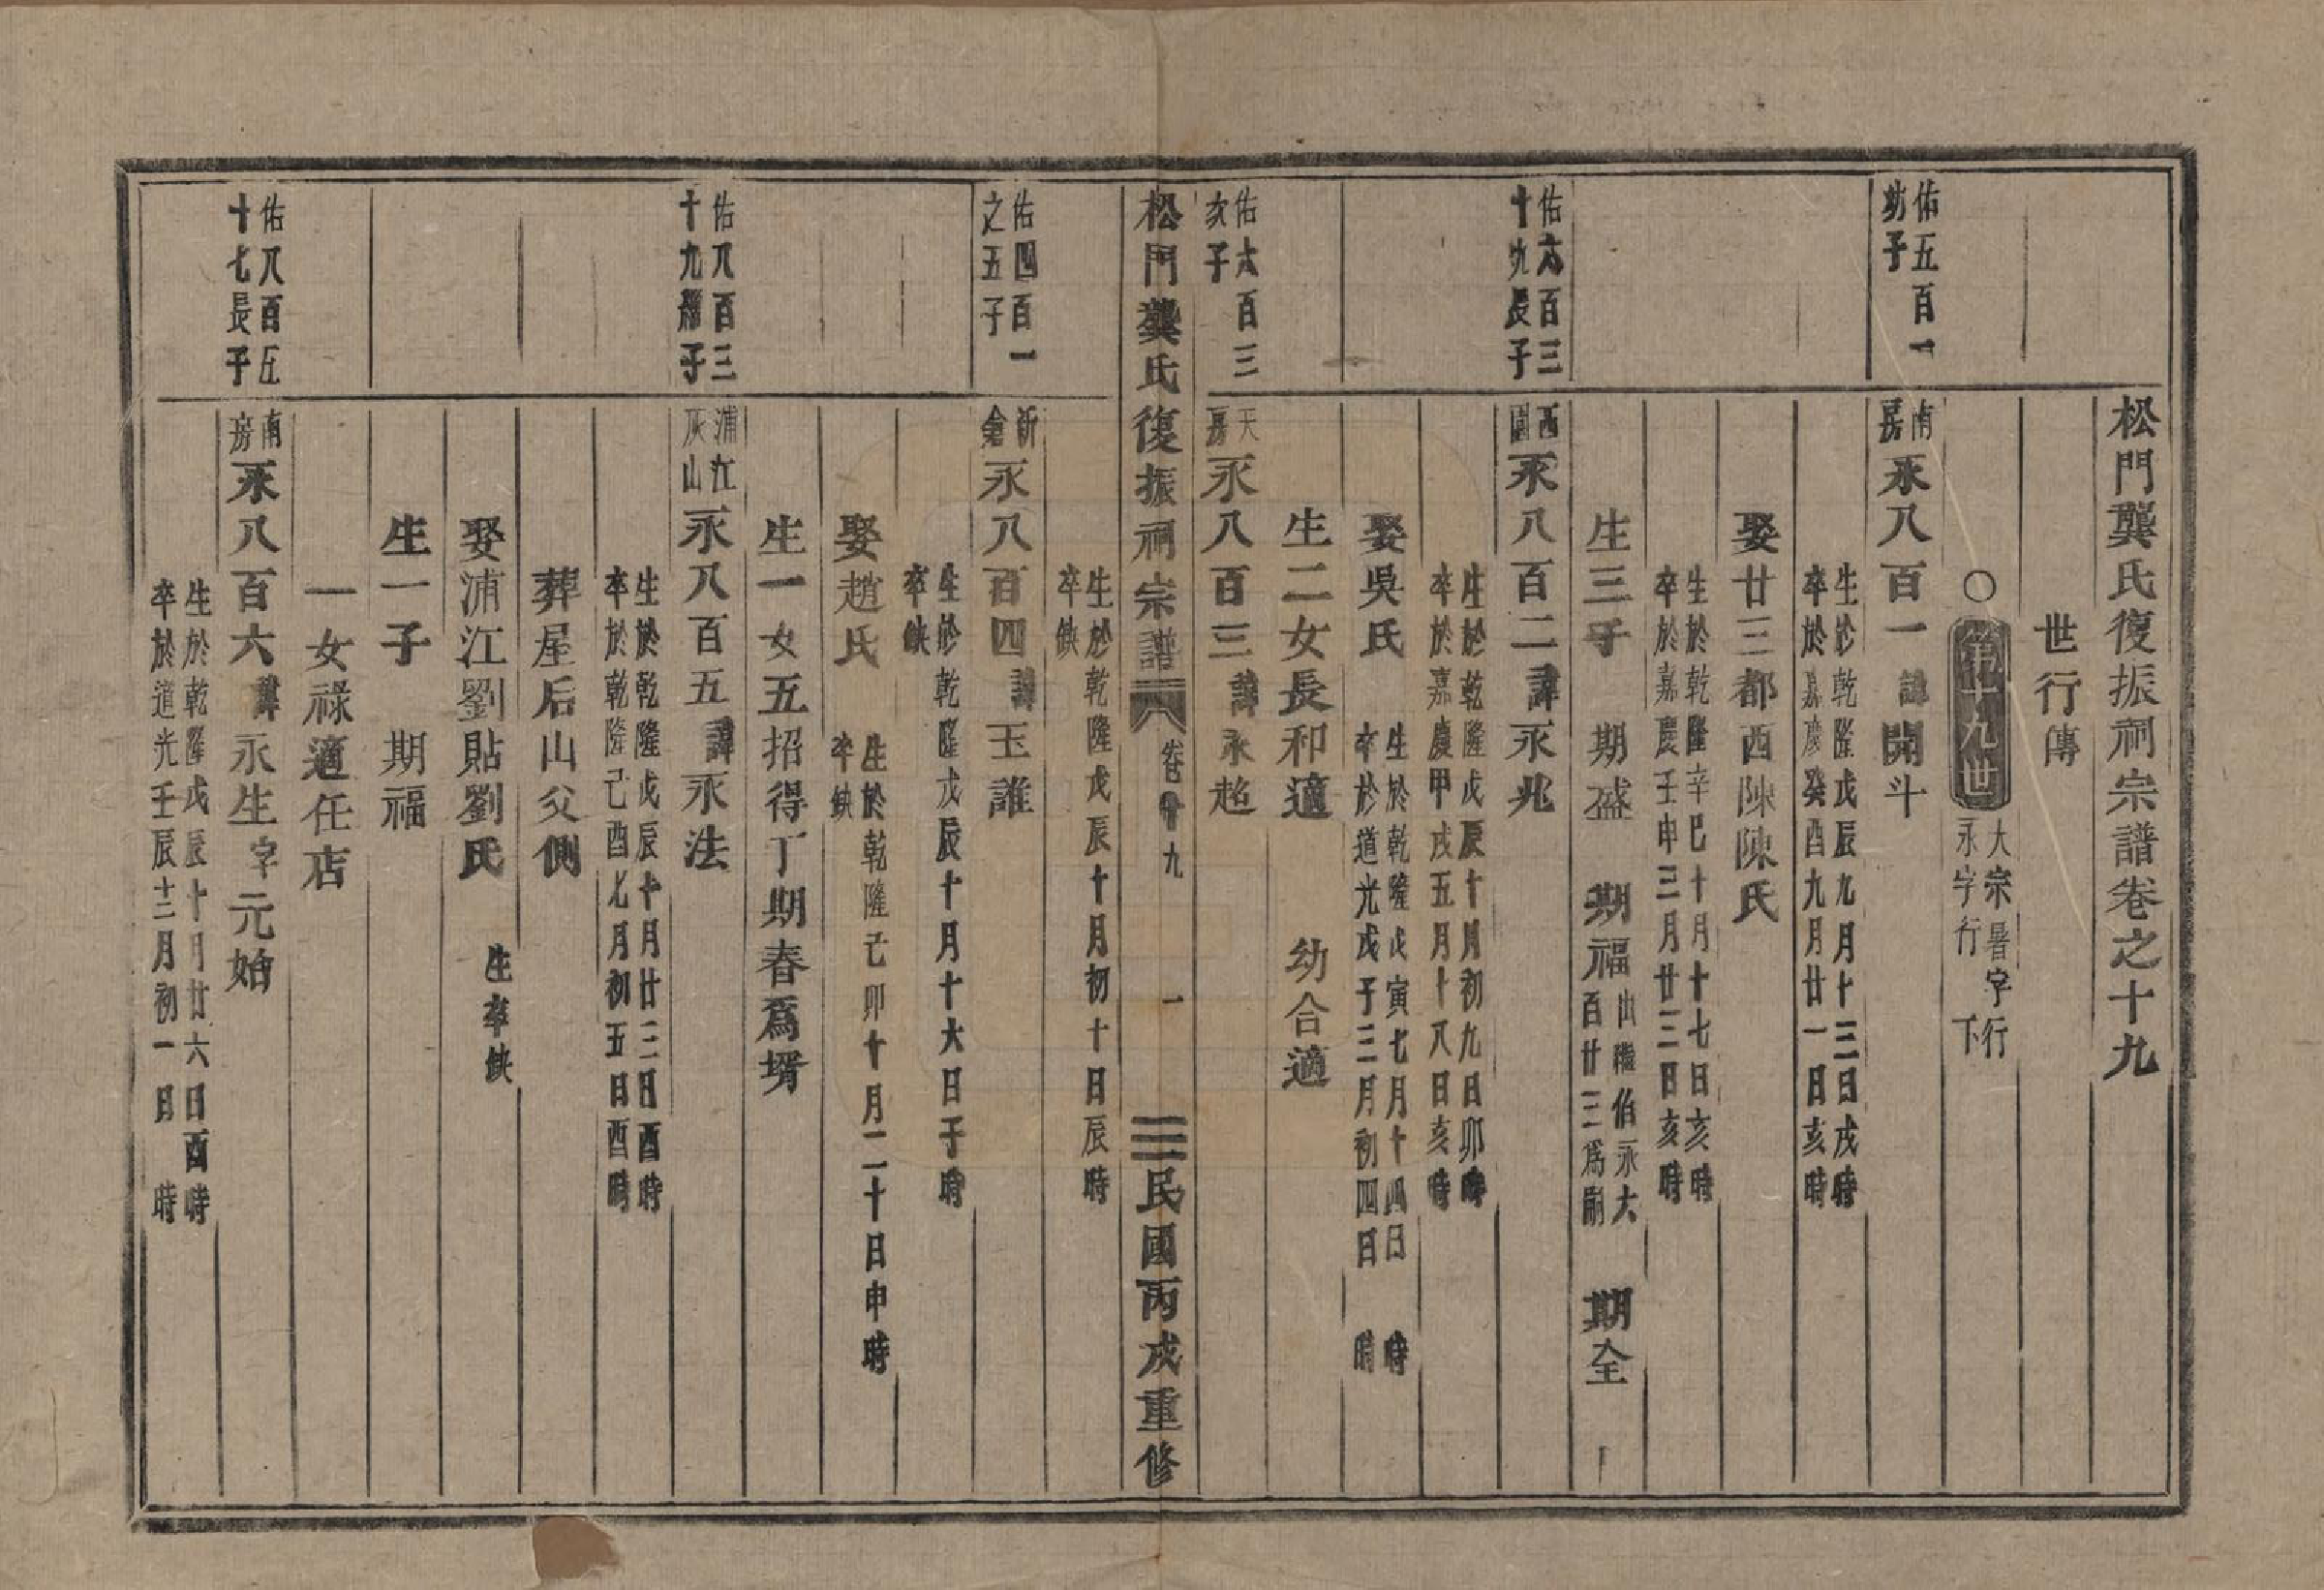 松門龔氏復振祠宗譜卷之十九
世行傳
〇第十九世 大宗暑字行 永字行下
佑五百一幼子
南房永八百一諱開斗
生於乾隆戊辰九月十三日戌時
卒於嘉慶癸酉九月廿一日亥時
娶廿三都西陳陳氏
生於乾隆辛巳十月十七日亥時
卒於嘉慶壬申三月廿三日亥時
生三子 期盛 期福 出繼伯永大百廿三爲嗣 期全
佑六百三十九長子
西園永八百二諱永兆
生於乾隆戊辰十月初九日卯時
卒於嘉慶甲戌五月十八日亥時
娶吳氏
生於乾隆戊寅七月十四日 時
卒於道光戊子三月初四日 時
生二女長和適 幼合適
佑六百三次子
天房永八百三諱永超
松門龔氏復振祠宗譜 卷十九 一 民國丙戌重修
生於乾隆戊辰十月初十日辰時
卒缺
佑四百一之五子
新倉永八百四諱玉誰
生於乾隆戊辰十月十六日子時
卒缺
娶趙氏
生於乾隆己卯十月二十日申時
卒缺
生一女五招得丁期春爲壻
佑八百三十九繼子
浦江灰山永八百五諱永法
生於乾隆戊辰十月廿二日酉時
卒於乾隆己酉七月初五日酉時
葬屋后山父側
娶浦江劉貼劉氏 生卒缺
生一子 期福
一女祿適任店
佑八百五十七長子
南房永八百六諱永生字元始
生於乾隆戊辰十月廿六日酉時
卒於道光壬辰十二月初一日 時